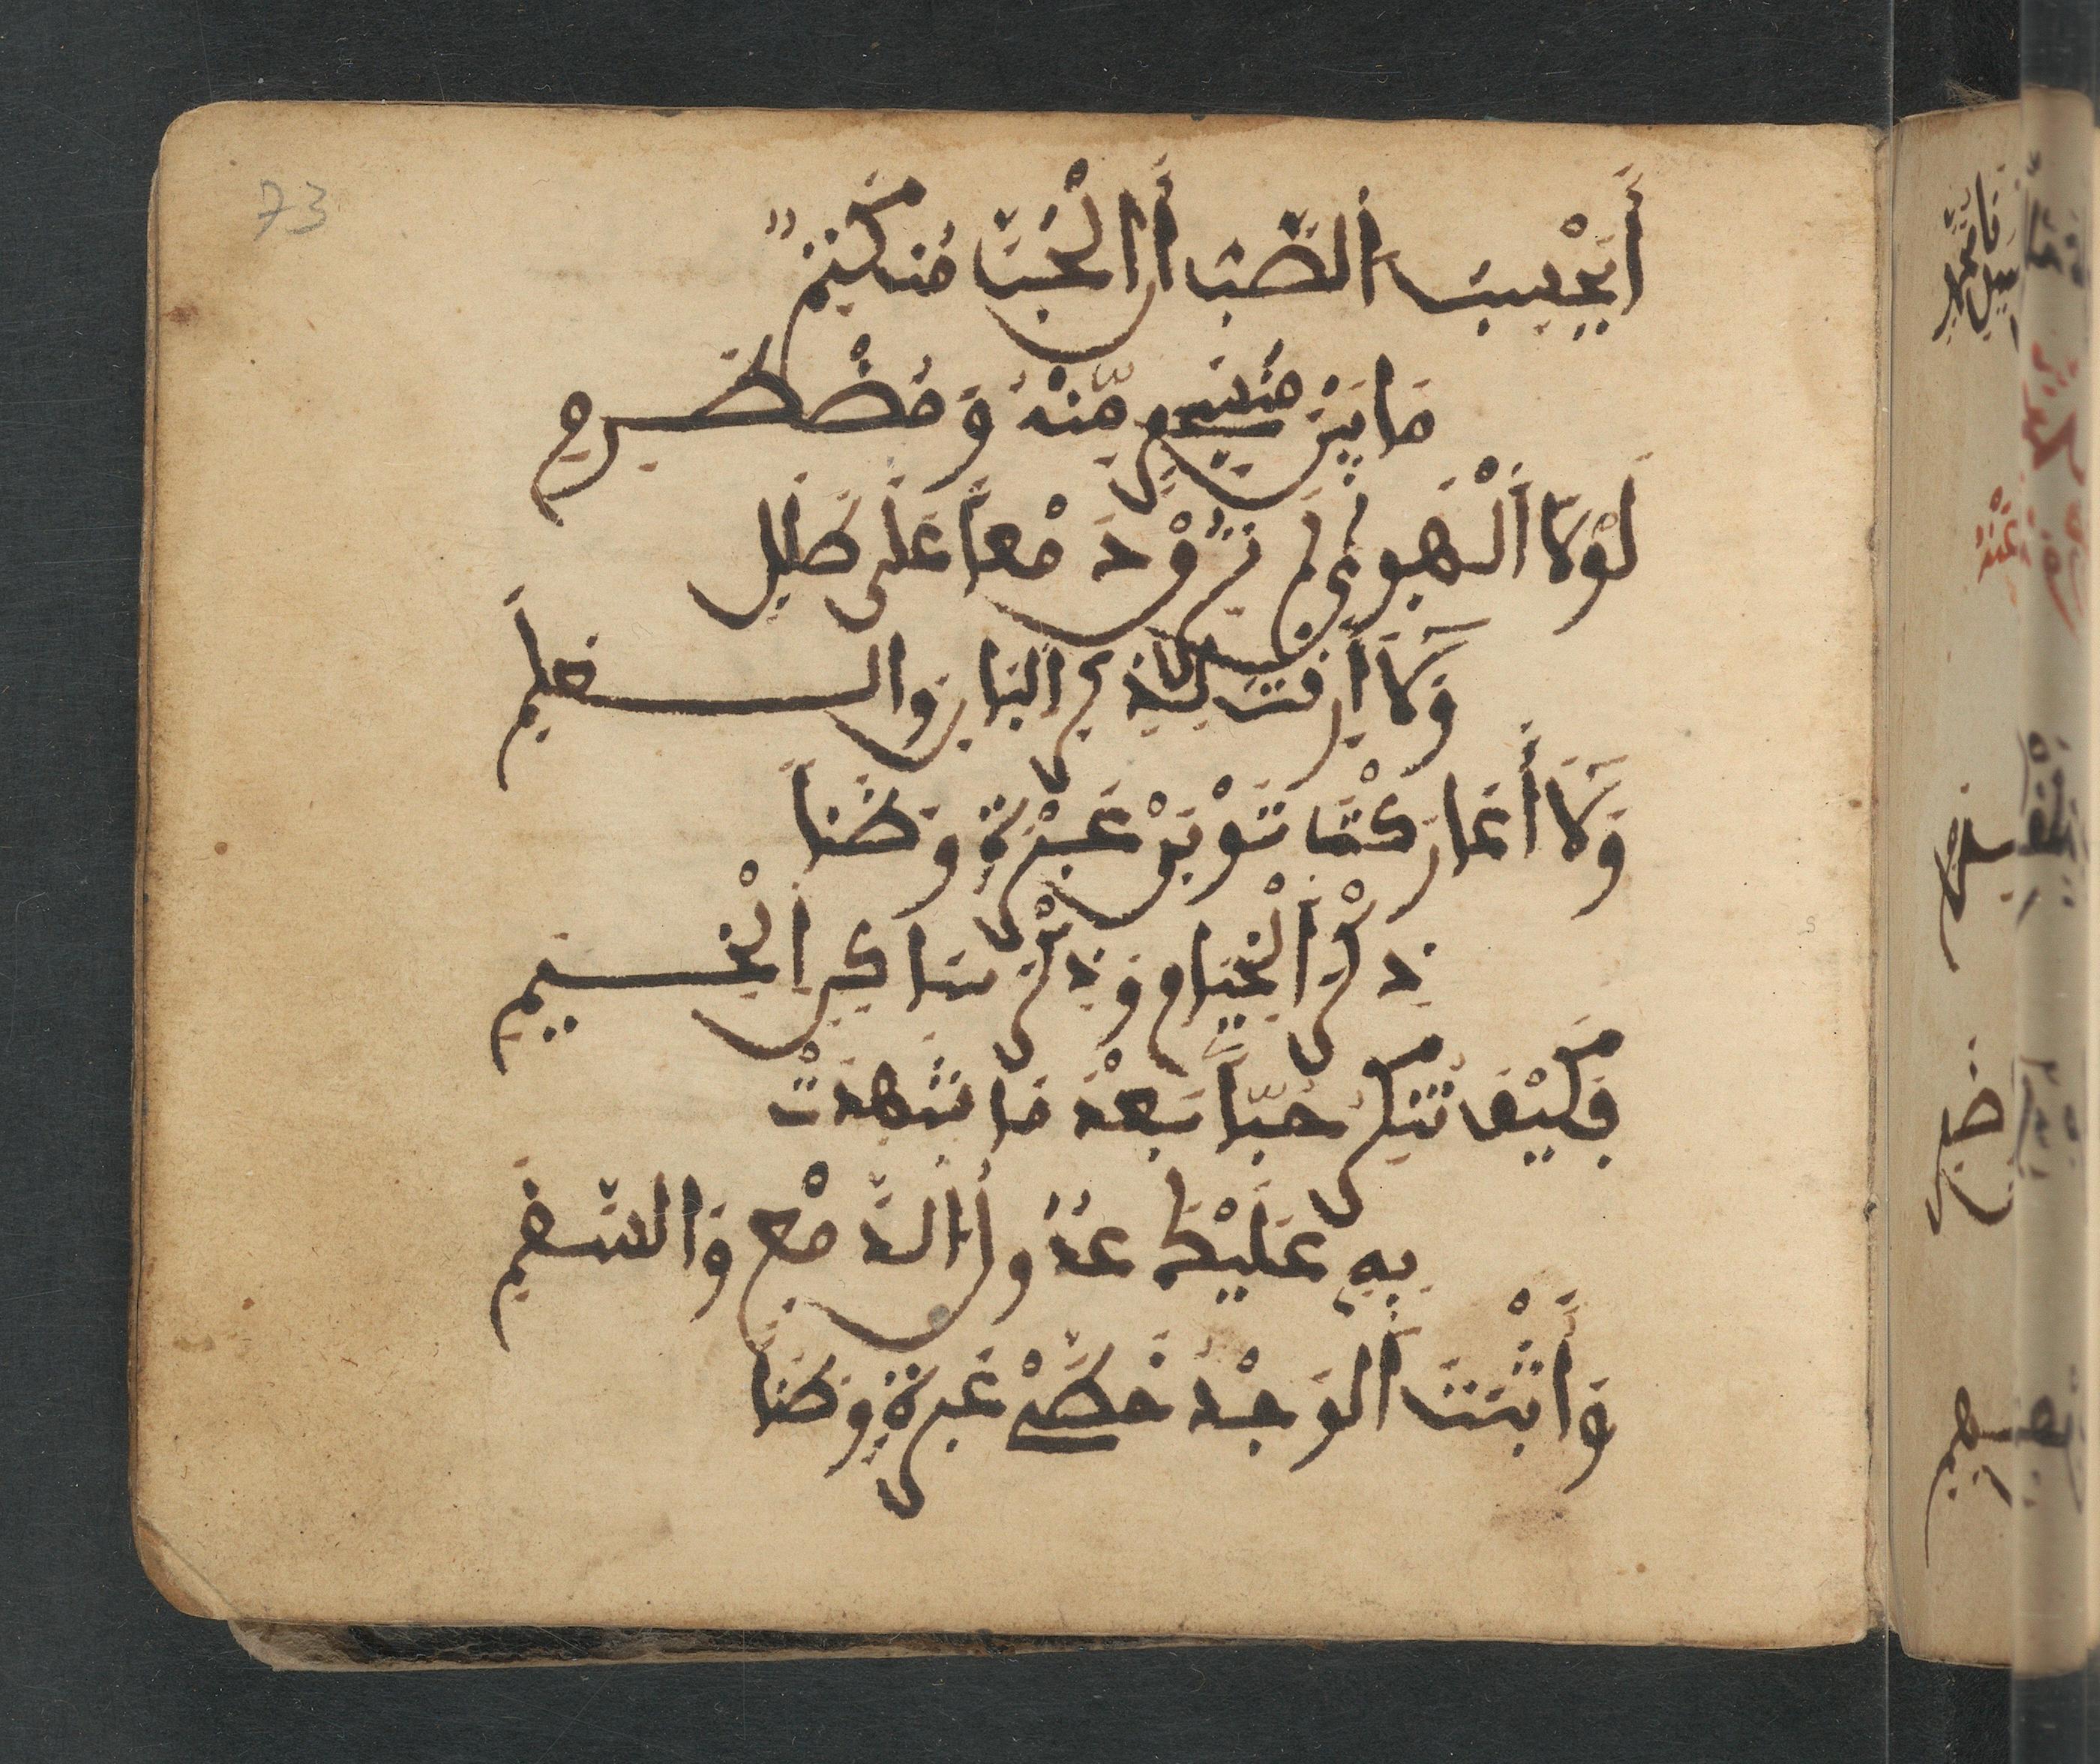 73
أَيَحْسِبُ الصَّبُّ أَنَّ الْحُبَّ مُنكَتِمٌ
مَا بَيْنَ مُنسَجِمٍ مِّنْهُ وَمُضْطَرِمِ
لَوْلَا الْهَوٰى لَمْ تُرِقْ دَمْعاً عَلٰى طَلَلٍ
وَلَا أَرِقْتَ لِذِكْرِ الْبَانِ وَالْعَلَمِ
وَلَا أَعَارَتْكَ ثَوْبَيْ عَبْرَةٍ وَضَناً
ذِكْرَ الْخِيَامِ وَذِكْرَ سَاكِنِ الْخِيَمِ
فَكَيْفَ تُنكِرُ حُبّاً بَعْدَ مَا شَهِدَتْ
بِهِ عَلَيْكَ عُدُولُ الدَّمْعِ وَالسَّقَمِ
وَأَثْبَتَ الْوَجْدُ خَطَّيْ عَبْرَةٍ وَضَناً